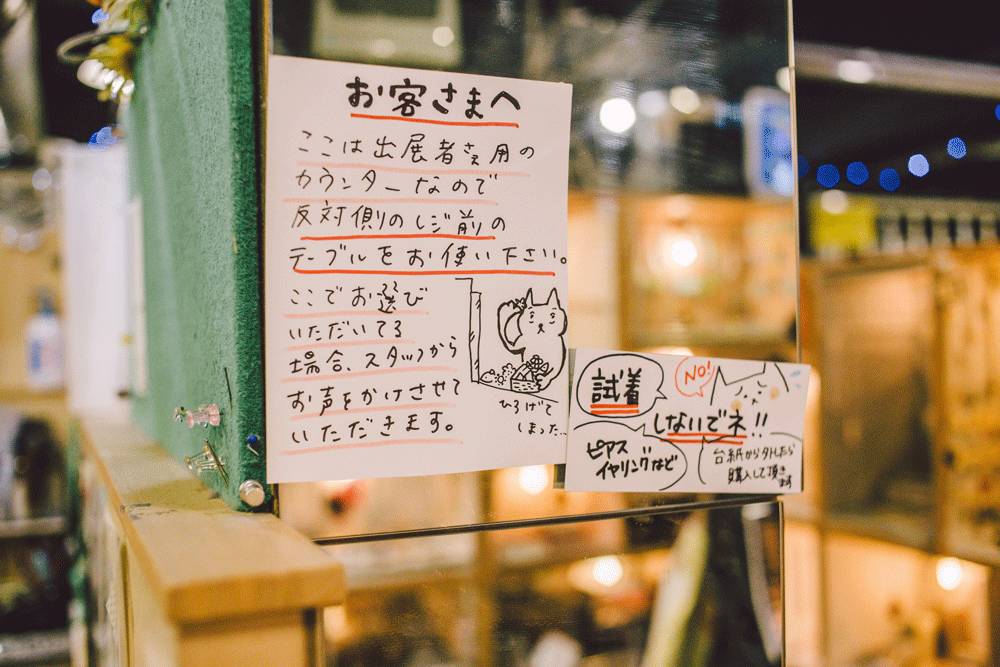 お客さまへ
ここは出展者専用の
カウンターなので
反対側のレジ前の
テーブルをお使い下さい。
ここでお選び
いただいてる
場合、スタッフから
お声をかけさせて
いただきます。
ひろげて
しまった…
試着
NO!
しないでネ!!
ピアス
イヤリングなど
台紙から外したら
購入して頂き
ます